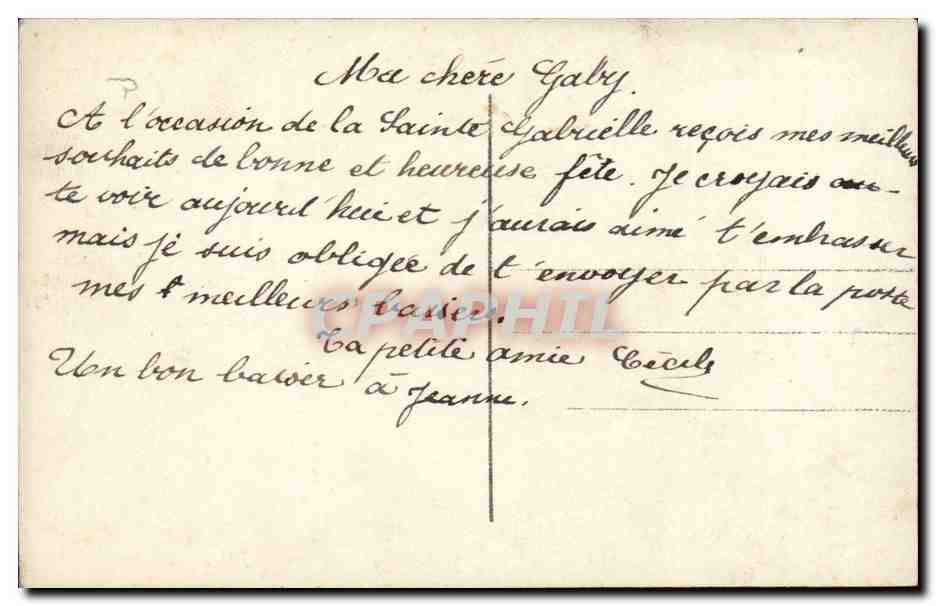 Ma chère Gaby.
A l'occasion de la Sainte Gabrielle reçois mes meilleurs
souhaits de bonne et heureuse fête. Je croyais
te voir aujourd'hui et j'aurais aimé t'embrasser
mais je suis obligée de t'envoyer par la poste
mes meilleurs baisers.
CPAPHIL
Ta petite amie Cécile
Un bon baiser à Jeanne.